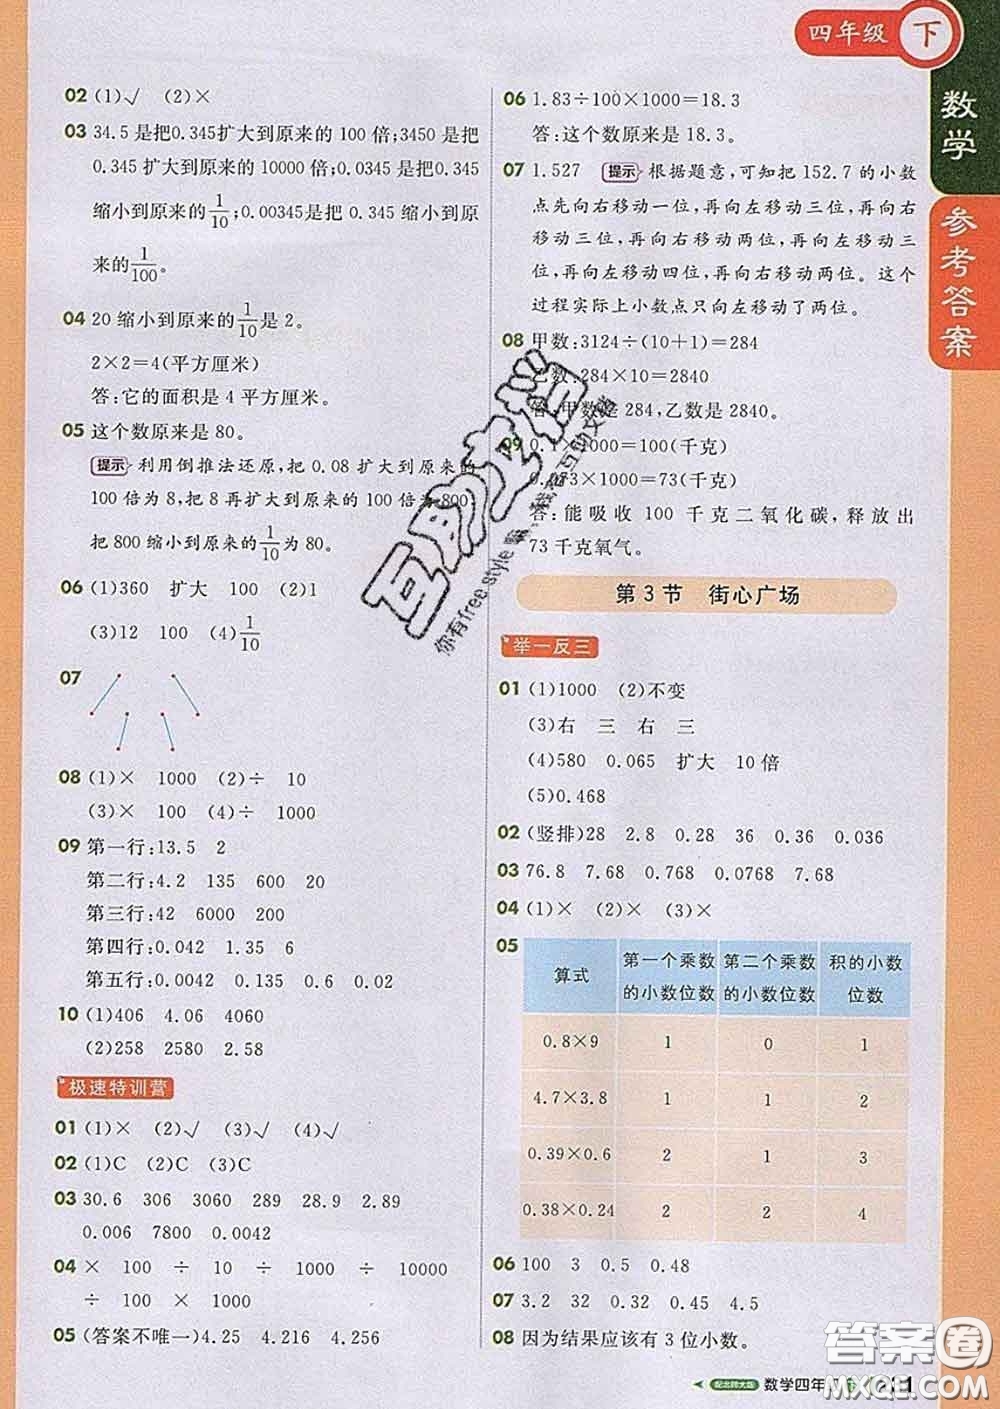 四年级 下
数学
参考答案
02 (1)√ (2)×
03 34.5是把0.345扩大到原来的100倍;3450是把
0.345扩大到原来的10000倍;0.0345是把0.345
缩小到原来的1/10;0.00345是把0.345缩小到原
来的1/100。
04 20缩小到原来的1/10是2。
2×2=4(平方厘米)
答:它的面积是4平方厘米。
05 这个数原来是80。
提示 利用倒推法还原,把0.08扩大到原来的
100倍为8,把8再扩大到原来的100倍为800,
把800缩小到原来的1/10为80。
06 (1)360 扩大 100 (2)1
(3)12 100 (4)1/10
07
08 (1)× 1000 (2)÷ 10
(3)× 100 (4)÷ 1000
09 第一行:13.5 2
第二行:4.2 135 600 20
第三行:42 6000 200
第四行:0.042 1.35 6
第五行:0.0042 0.135 0.6 0.02
10 (1)406 4.06 4060
(2)258 2580 2.58
极速特训营
01 (1)× (2)√ (3)√ (4)√
02 (1)C (2)C (3)C
03 30.6 306 3060 289 28.9 2.89
0.006 7800 0.0042
04 × 100 ÷ 10 ÷ 1000 ÷ 10000
÷ 100 × 1000
05 (答案不唯一)4.25 4.216 4.256
06 1.83÷100×1000=18.3
答:这个数原来是18.3。
07 1.527 提示 根据题意,可知把152.7的小数
点先向右移动一位,再向左移动三位,再向右
移动三位,再向右移动两位,再向左移动三
位,再向左移动四位,再向右移动两位。这个
过程实际上小数点只向左移动了两位。
08 甲数:3124÷(10+1)=284
乙数:284×10=2840
答:甲数是284,乙数是2840。
09 0.1×1000=100(千克)
0.073×1000=73(千克)
答:能吸收100千克二氧化碳,释放出
73千克氧气。
第3节 街心广场
举一反三
01 (1)1000 (2)不变
(3)右 三 右 三
(4)580 0.065 扩大 10倍
(5)0.468
02 (竖排)28 2.8 0.28 36 0.36 0.036
03 76.8 7.68 0.768 0.0768 7.68
04 (1)× (2)× (3)×
05
算式 第一个乘数的小数位数 第二个乘数的小数位数 积的小数位数
0.8×9 1 0 1
4.7×3.8 1 1 2
0.39×0.6 2 1 3
0.38×0.24 2 2 4
06 100 3 0.5 0.48
07 3.2 32 0.32 0.45 4.5
08 因为结果应该有3位小数。
配北师大版 数学四年
互助文档
答案圈